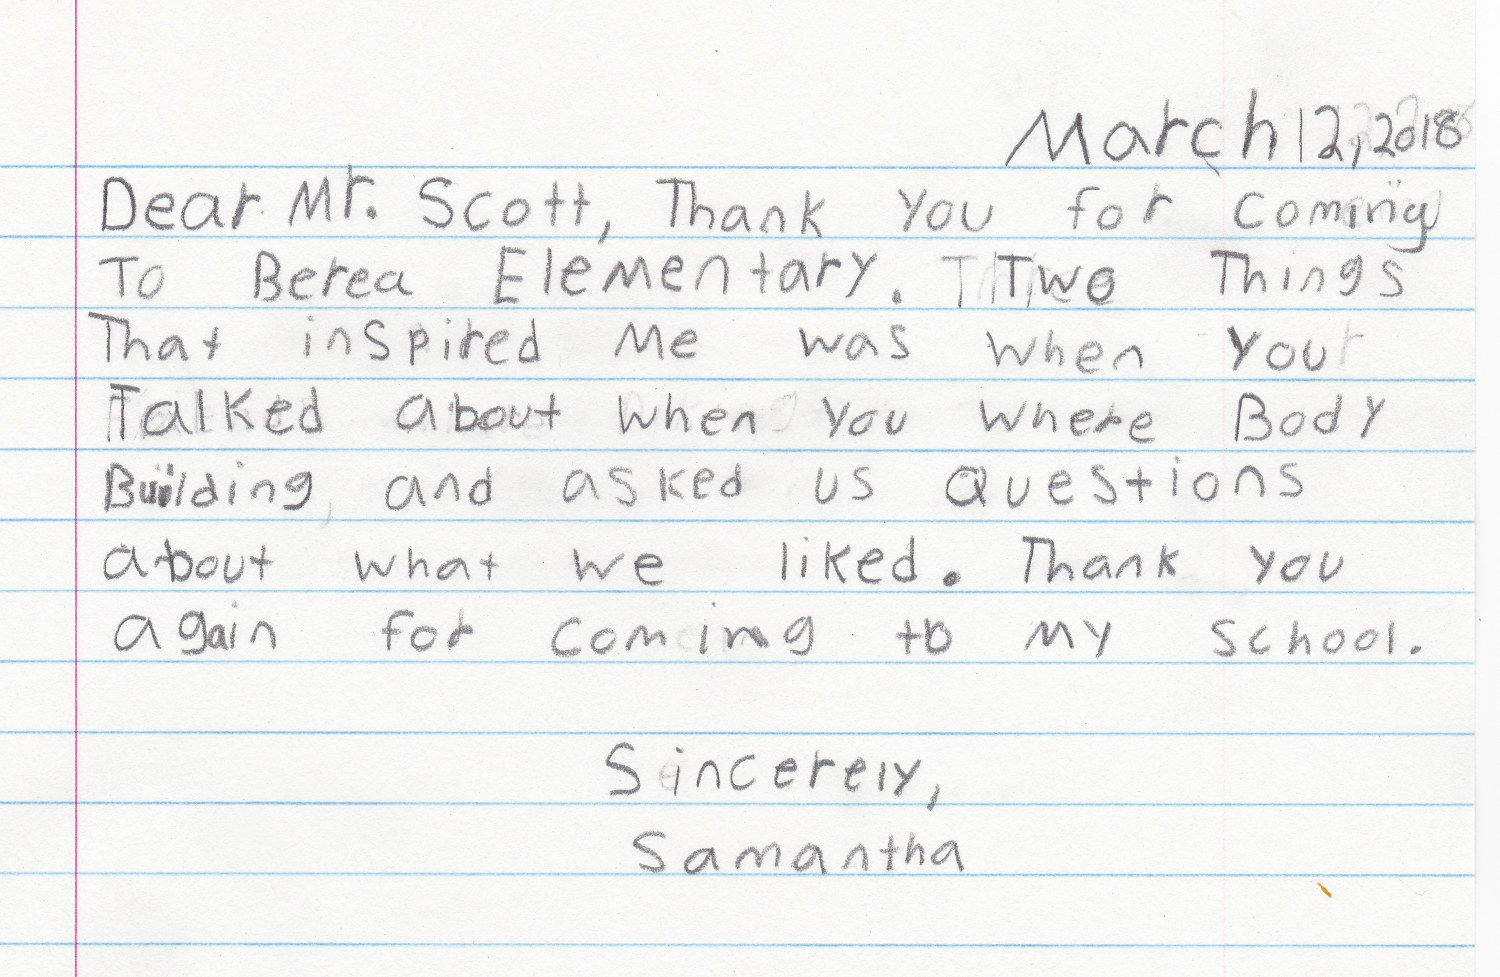 March 12, 2018
Dear Mr. Scott, Thank You for Coming
To Berea Elementary. Two Things
That inspired Me was when You
Talked about when you where Body
Building, and asked us Questions
about what we liked. Thank you
again for coming to my school.
Sincerely,
Samantha